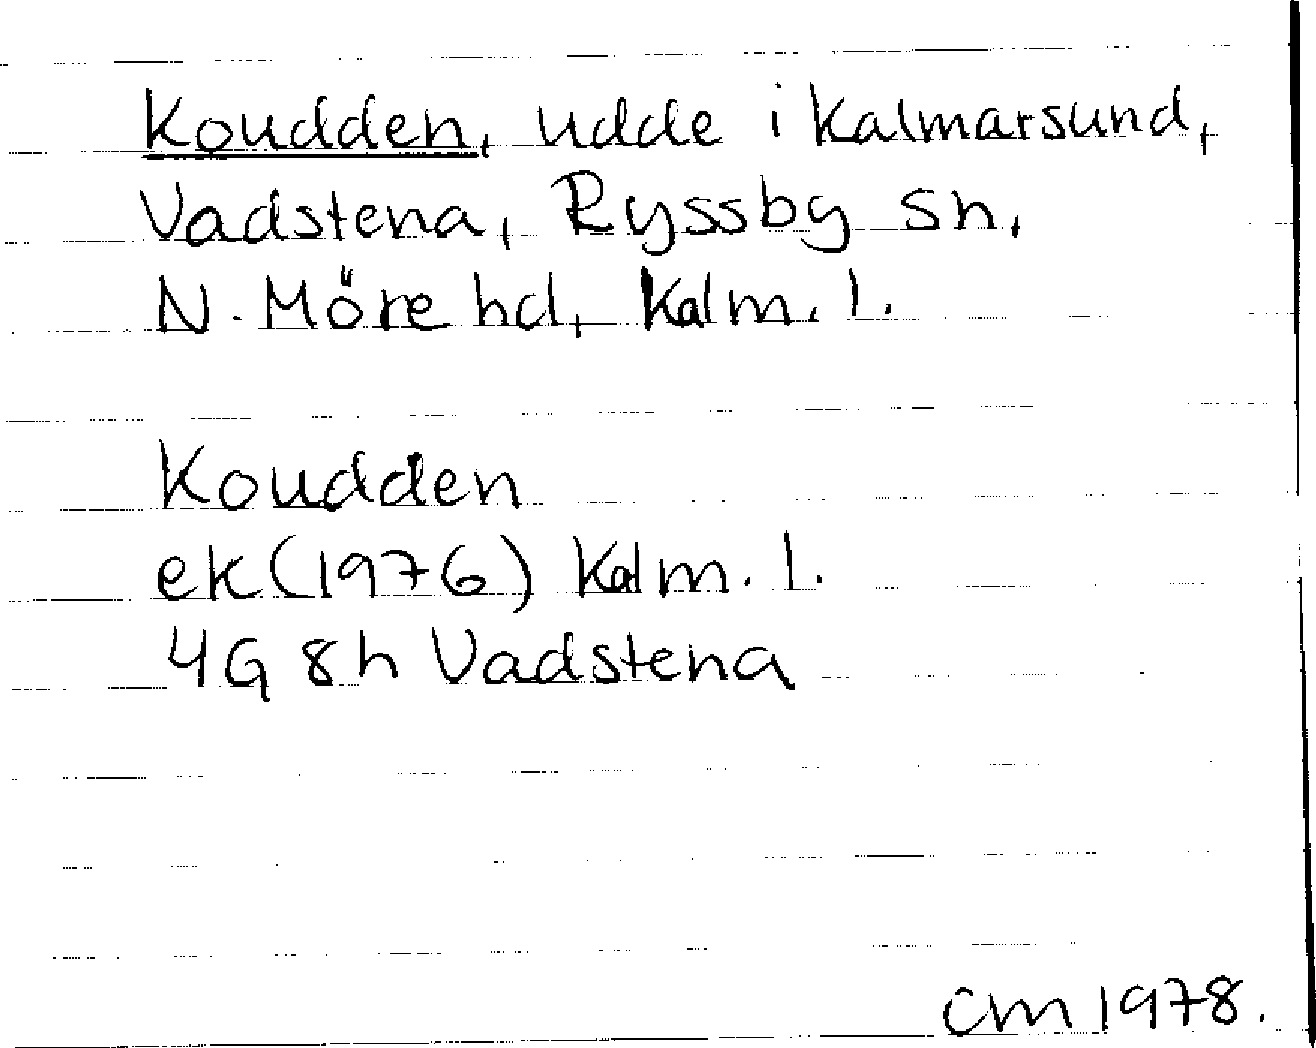 Koudden, udde i Kalmarsund,
Vadstena, Ryssby sn,
N. Möre hd, Kalm. l.
Koudden
ek (1976) Kalm. l.
4G 8h Vadstena
CM 1978.